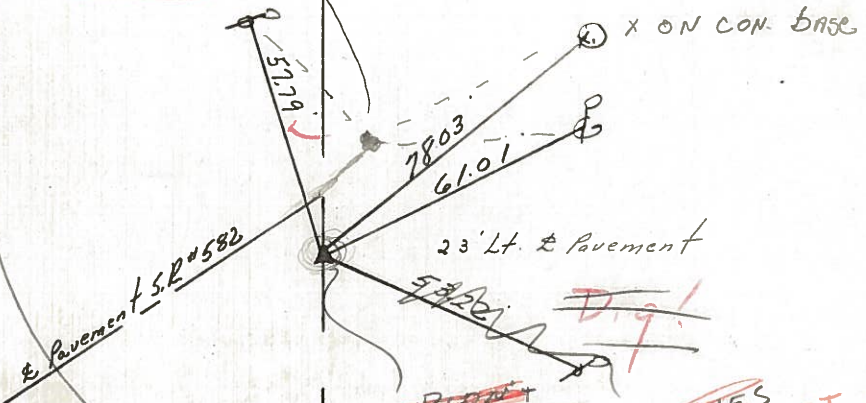 X ON CON. BASE
57.79
78.03
61.01
23' Lt. ℄ Pavement
℄ Pavement S.R #582
53.20
Dig!